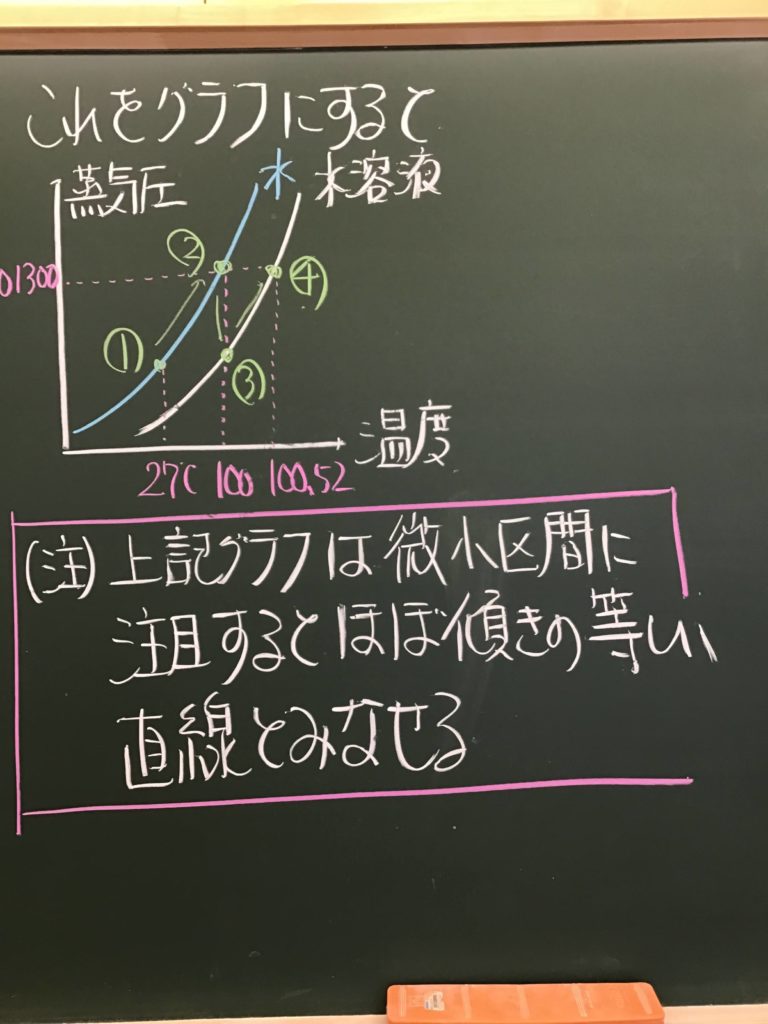 これをグラフにすると
蒸気圧
水
水溶液
②
01300
④
①
③
温度
27℃ 100 100.52
(注) 上記グラフは微小区間に
注目するとほぼ傾きの等しい
直線とみなせる